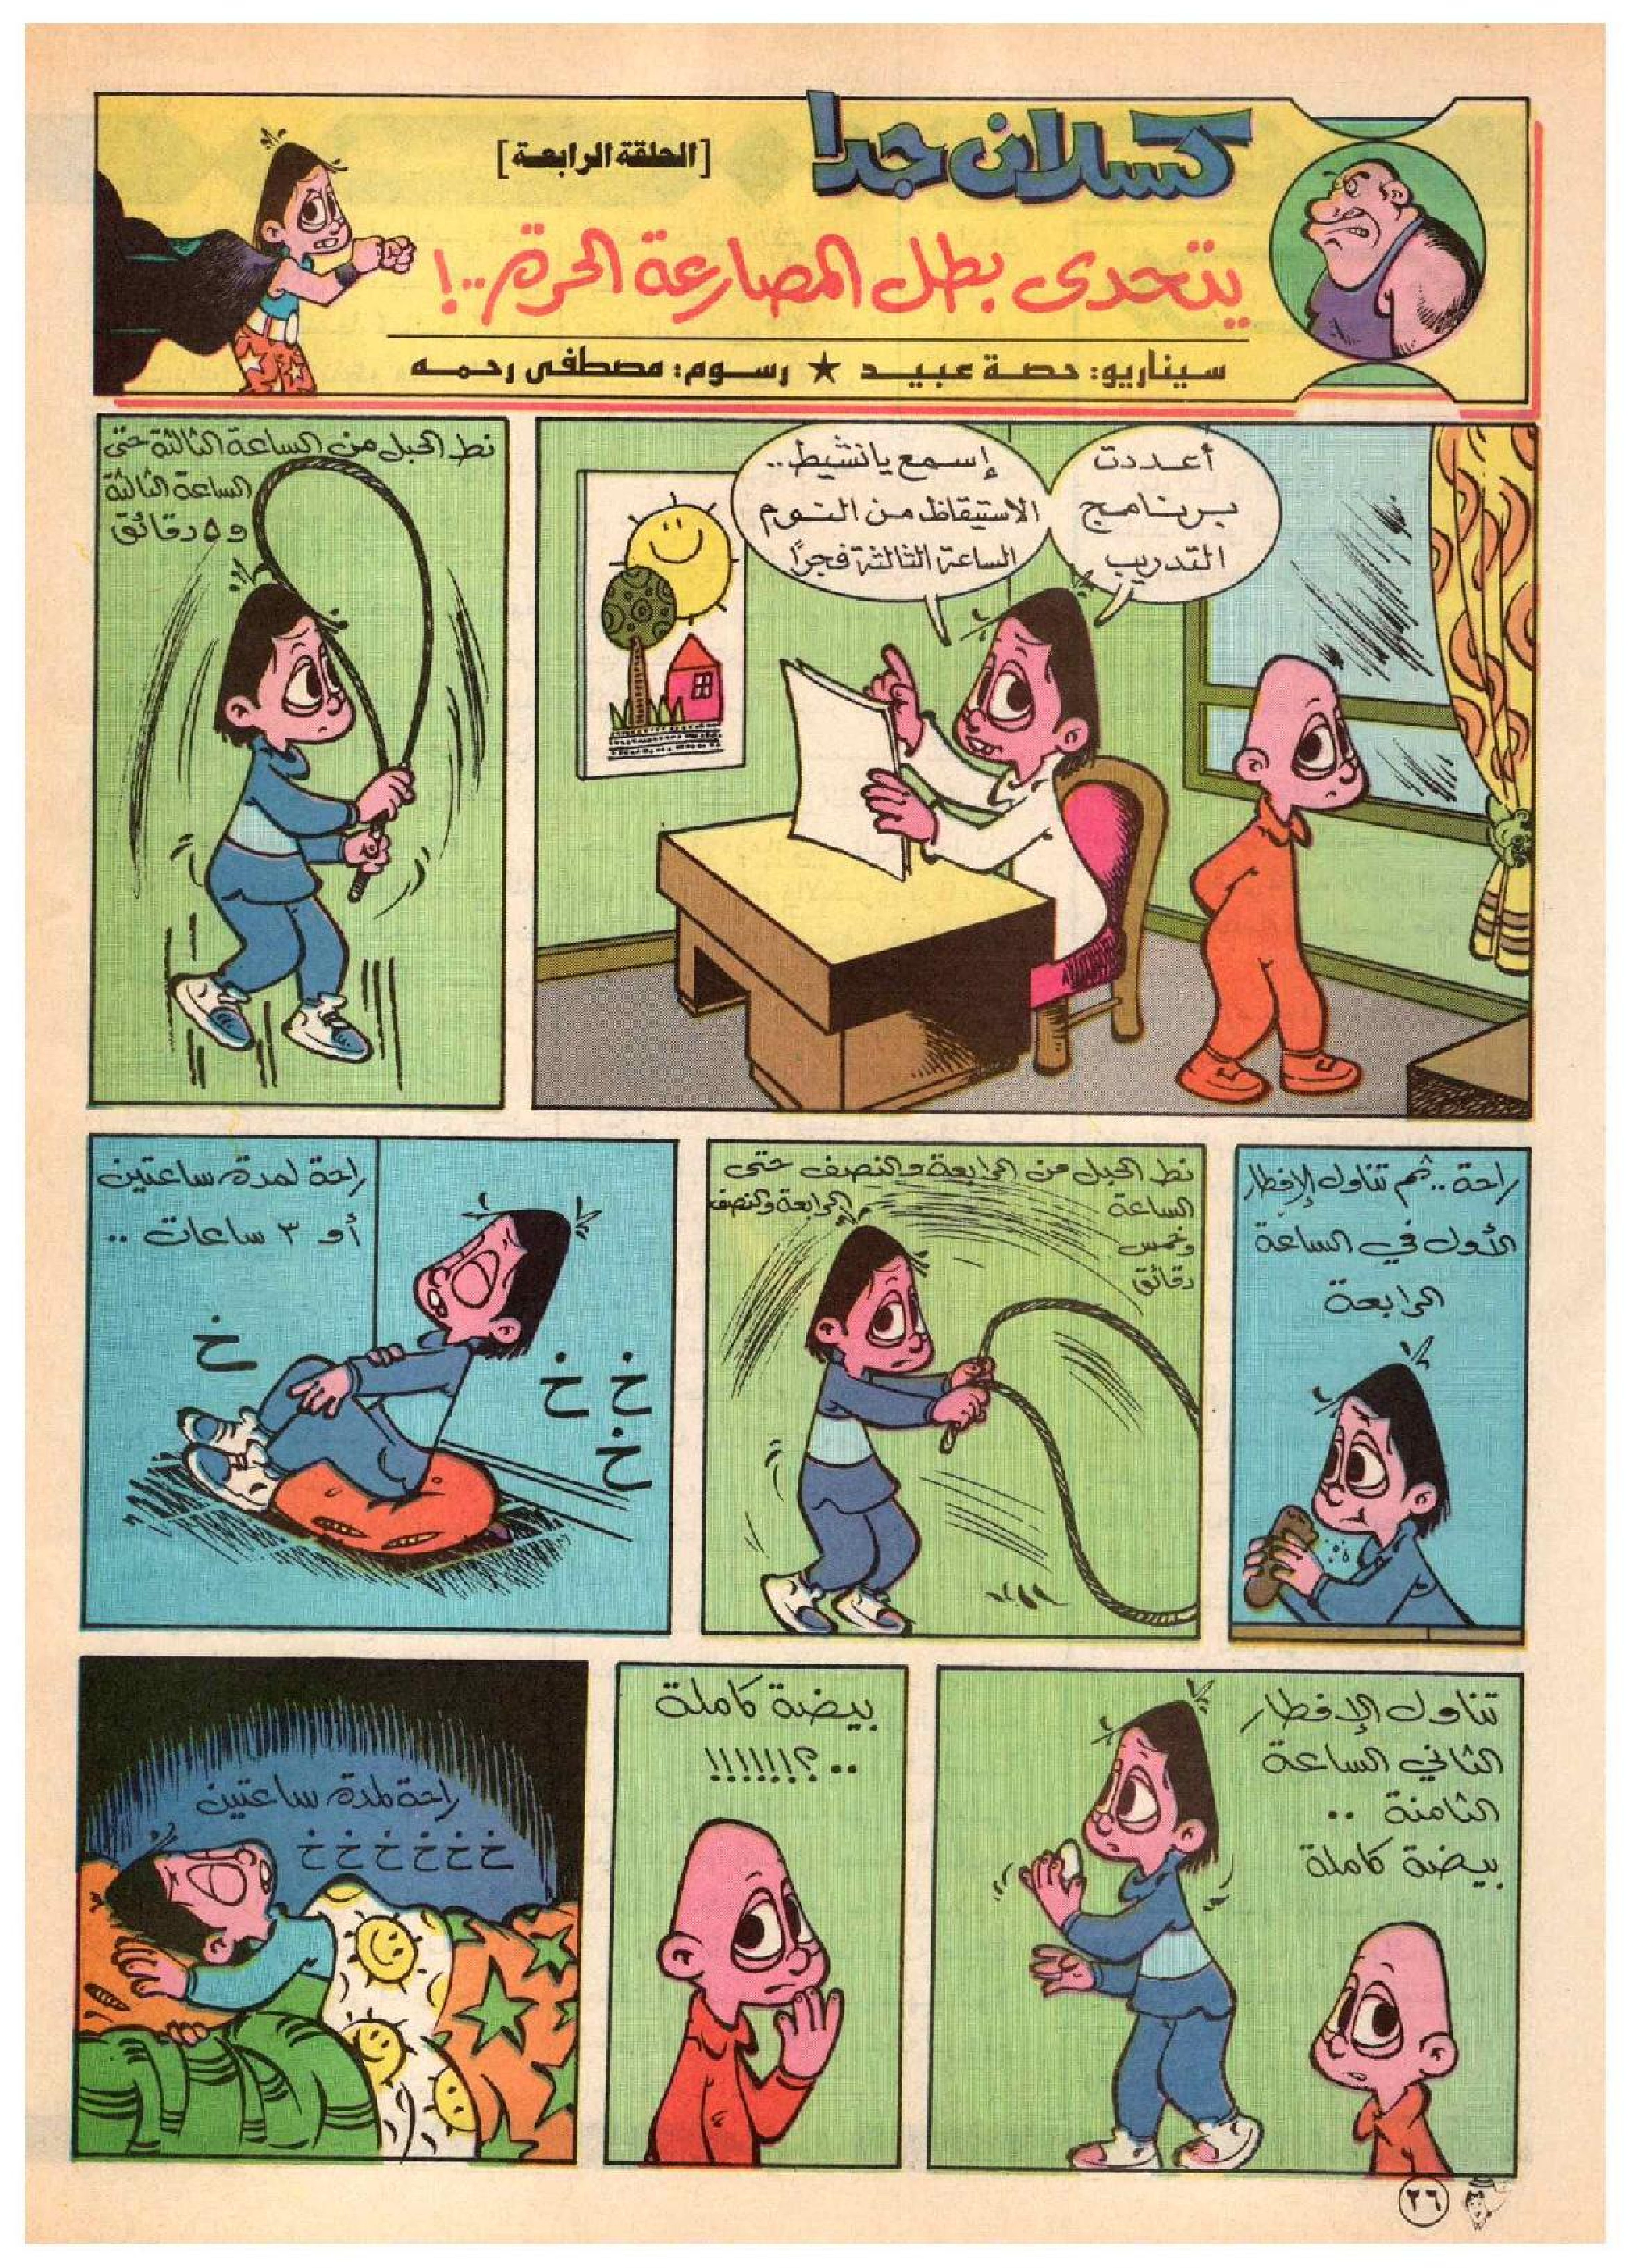 كسلان جدا
[الحلقة الرابعة]
يتحدى بطل المصارعة الحرة..!
سيناريو: حصة عبيد ★ رسوم: مصطفى رحمه
أعددت
برنامج
التدريب
إسمع يانشيط..
الاستيقاظ من النوم
الساعة الثالثة فجرًا
نط الحبل من الساعة الثالثة حتى
الساعة الثالثة
و ٥ دقائق
راحة.. ثم تناول الإفطار
الأول في الساعة
الرابعة
نط الحبل من الرابعة والنصف حتى
الساعة
الرابعة والنصف
وخمس
دقائق
راحة لمدة ساعتين
أو ٣ ساعات ..
خ
خ خ
خ
تناول الإفطار
الثاني الساعة
الثامنة ..
بيضة كاملة
بيضة كاملة
..؟!!!!!!
راحة لمدة ساعتين
خ خ خ خ خ خ
٢٦